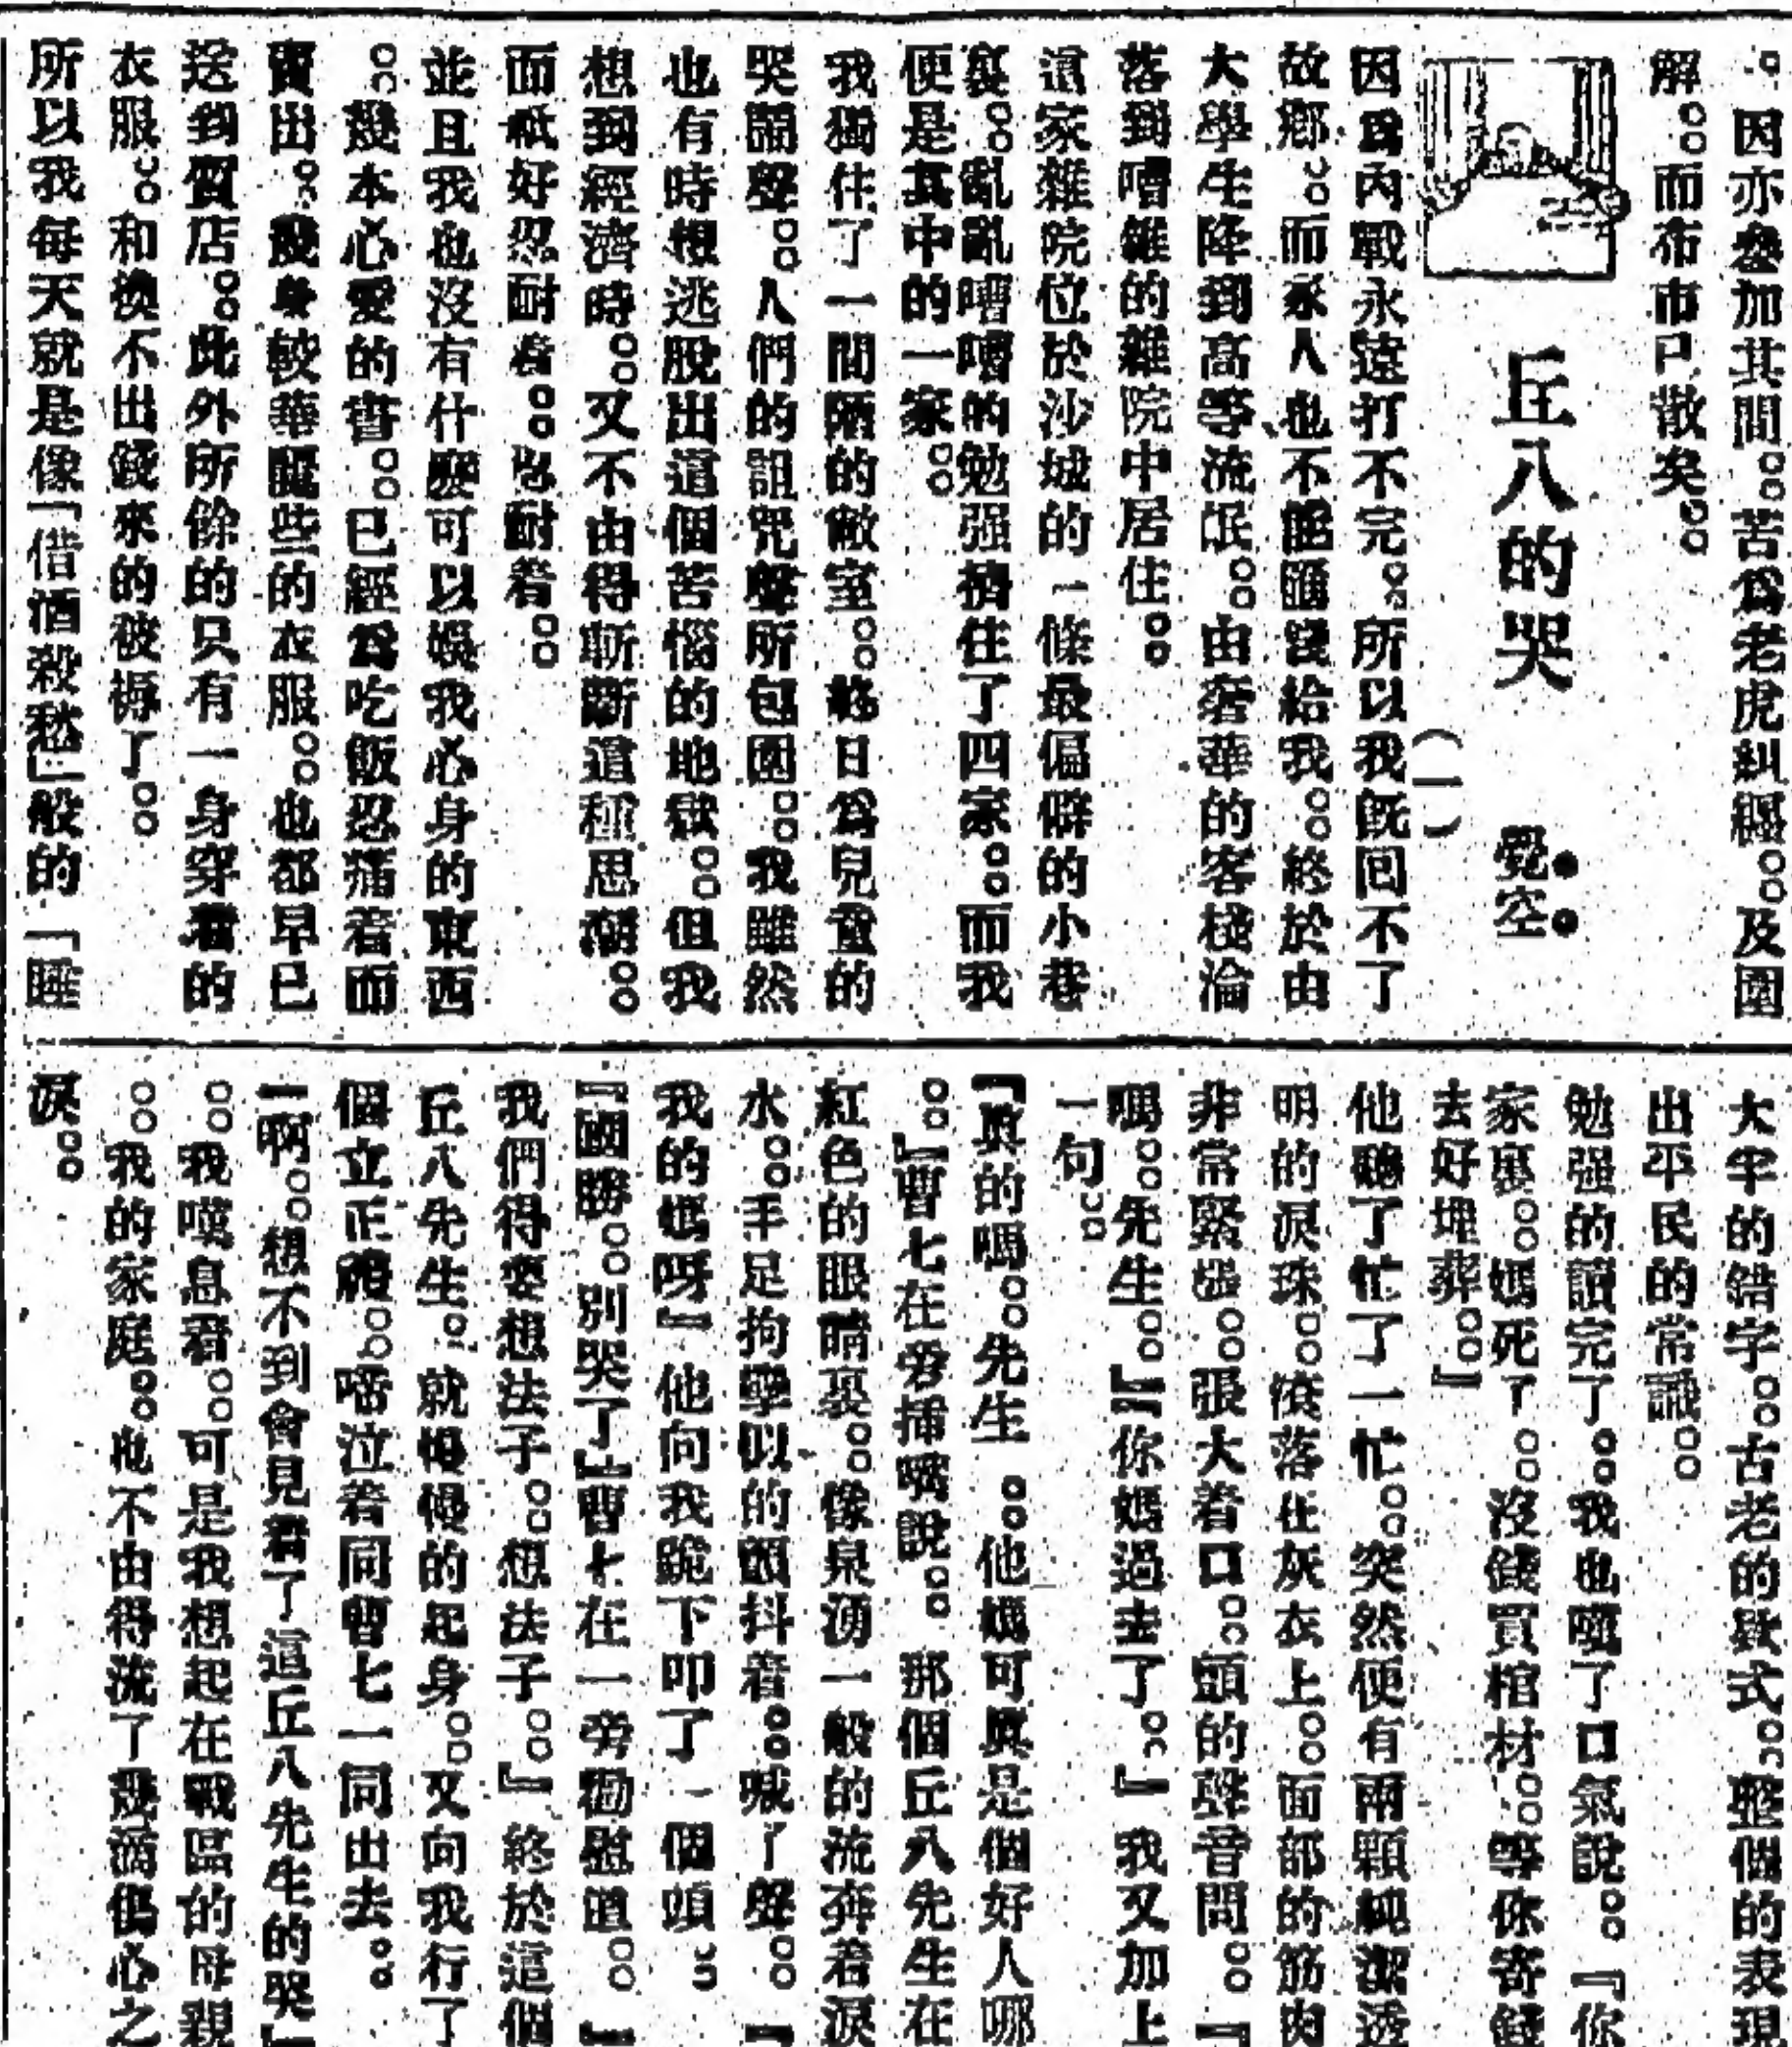 。因亦參加其間。。苦爲老虎糾纒。。及圍
解。。而布市已散矣。。
丘八的哭
覺空
(一)
因爲內戰永遠打不完。。所以我旣回不了
故鄉。。而家人也不能匯錢給我。。終於由
大學生降到高等流氓。。由奢華的客棧淪
落到嘈雜的雜院中居住。。
這家雜院位於沙城的一條最偏僻的小巷
裏。。亂亂嘈嘈的勉强擠住了四家。。而我
便是其中的一家。。
我獨住了一間陋的敝室。。終日爲兒童的
哭鬧聲。。人們的詛咒聲所包圍。。我雖然
也有時想逃脫出這個苦惱的地獄。。但我
想到經濟時。。又不由得斬斷這種思潮。。
而祇好忍耐着。。忍耐着。。
並且我也沒有什麽可以娛我心身的東西
。。幾本心愛的書。。已經爲吃飯忍痛着而
賣出。。幾身較華麗些的衣服。。也都早已
送到質店。。此外所餘的只有一身穿着的
衣服。。和換不出錢來的被褥了。。
所以我每天就是像「借酒殺愁」般的「睡
大字的錯字。。古老的欵式。。整個的表現
出平民的常識。。
勉强的讀完了。。我也嘆了口氣說。。『你
家裏。。媽死了。。沒錢買棺材。。等你寄錢
去好埋葬。。』
他聽了忙了一忙。。突然便有兩顆純潔透
明的淚珠。。滾落在灰衣上。。面部的筋肉
非常緊張。。張大着口。。顫的聲音問。。『
嗎。。先生。。』『你媽過去了。。』我又加上
一句。。
『眞的嗎。。先生。。他媽可眞是個好人哪
。。』曹七在旁插嘴說。。那個丘八先生在
紅色的眼睛裏。。像泉湧一般的流奔着淚
水。。手足拘攣似的顫抖着。。喊了聲。。『
我的媽呀』他向我跪下叩了一個頭。。
『國勝。。別哭了』曹七在一旁勸慰道。。『
我們得要想法子。。想法子。。』終於這個
丘八先生。。就慢慢的起身。。又向我行了
個立正禮。。啼泣着同曹七一同出去。。
一啊。。想不到會見着了這丘八先生的哭」
。。我嘆息着。。可是我想起在戰區的母親
。。我的家庭。。也不由得流了幾滴傷心之
淚。。